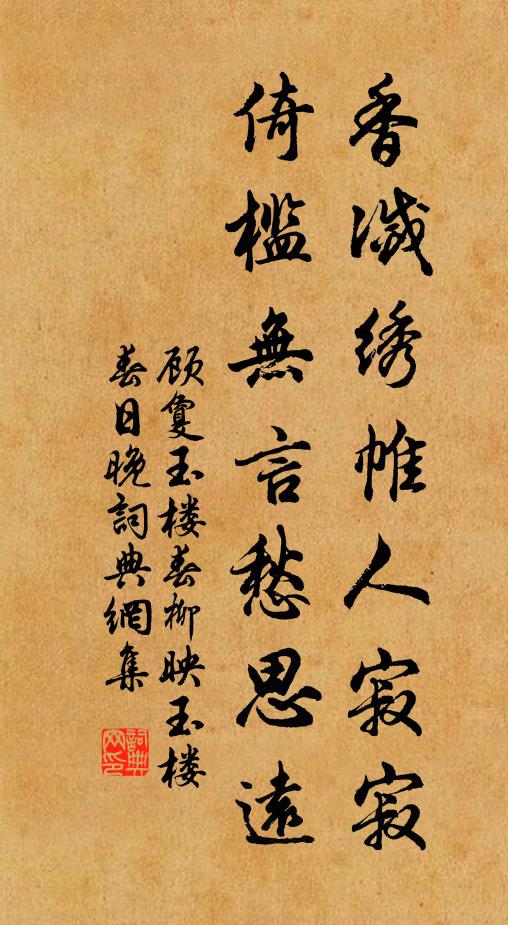 香滅绣帷人寂寂
倚槛無言愁思遠
顾敻玉楼春柳映玉楼
春日晚詞典網集
詞典网印